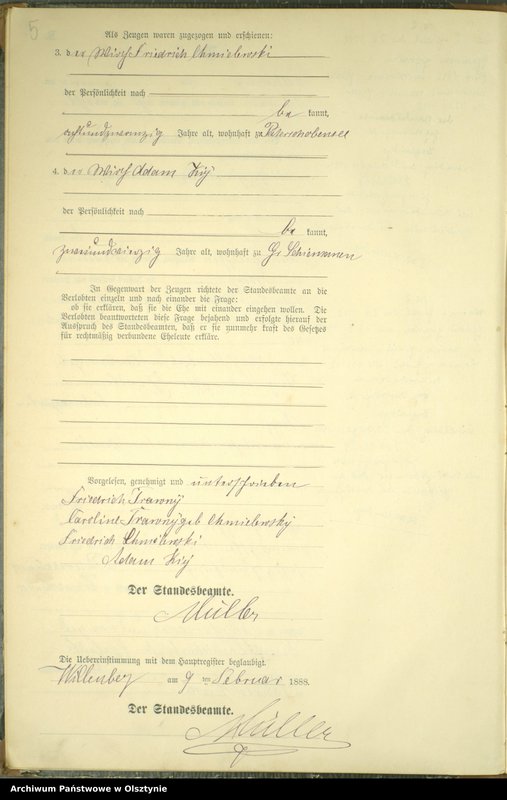 5
Als Zeugen waren zugezogen und erschienen:
3. der Wirth Friedrich Chmielewski
der Persönlichkeit nach
be kannt,
achtundzwanzig Jahre alt, wohnhaft zu
4. der Wirth Adam Kij
der Persönlichkeit nach
be kannt,
zweiundvierzig Jahre alt, wohnhaft zu Gr Schiemanen
In Gegenwart der Zeugen richtete der Standesbeamte an die
Verlobten einzeln und nach einander die Frage:
ob sie erklären, daß sie die Ehe mit einander eingehen wollen. Die
Verlobten beantworteten diese Frage bejahend und erfolgte hierauf der
Ausspruch des Standesbeamten, daß er sie nunmehr kraft des Gesetzes
für rechtmäßig verbundene Eheleute erkläre.
Vorgelesen, genehmigt und unterschrieben
Friedrich Trawny
Caroline Trawny geb Chmielewsky
Friedrich Chmilewski
Adam Kij
Der Standesbeamte.
Müller
Die Uebereinstimmung mit dem Hauptregister beglaubigt.
Willenberg am 9 ten Februar 1888.
Der Standesbeamte.
Müller
Archiwum Państwowe w Olsztynie